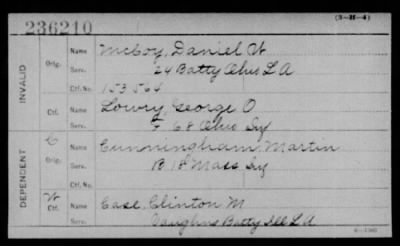 (3-H-4)
236210
INVALID
Orig. Name McCoy, Daniel W
Serv. 24 Batty Ohio L A
Ctf. No. 153564
Ctf. Name Lowry, George O
Serv. F 68 Ohio Inf
DEPENDENT
C Orig. Name Cunningham, Martin
Serv. B 18 Mass Inf
Ctf. No.
W Ctf. Name Case, Clinton M
Serv. Vaughns Batty Ill L A